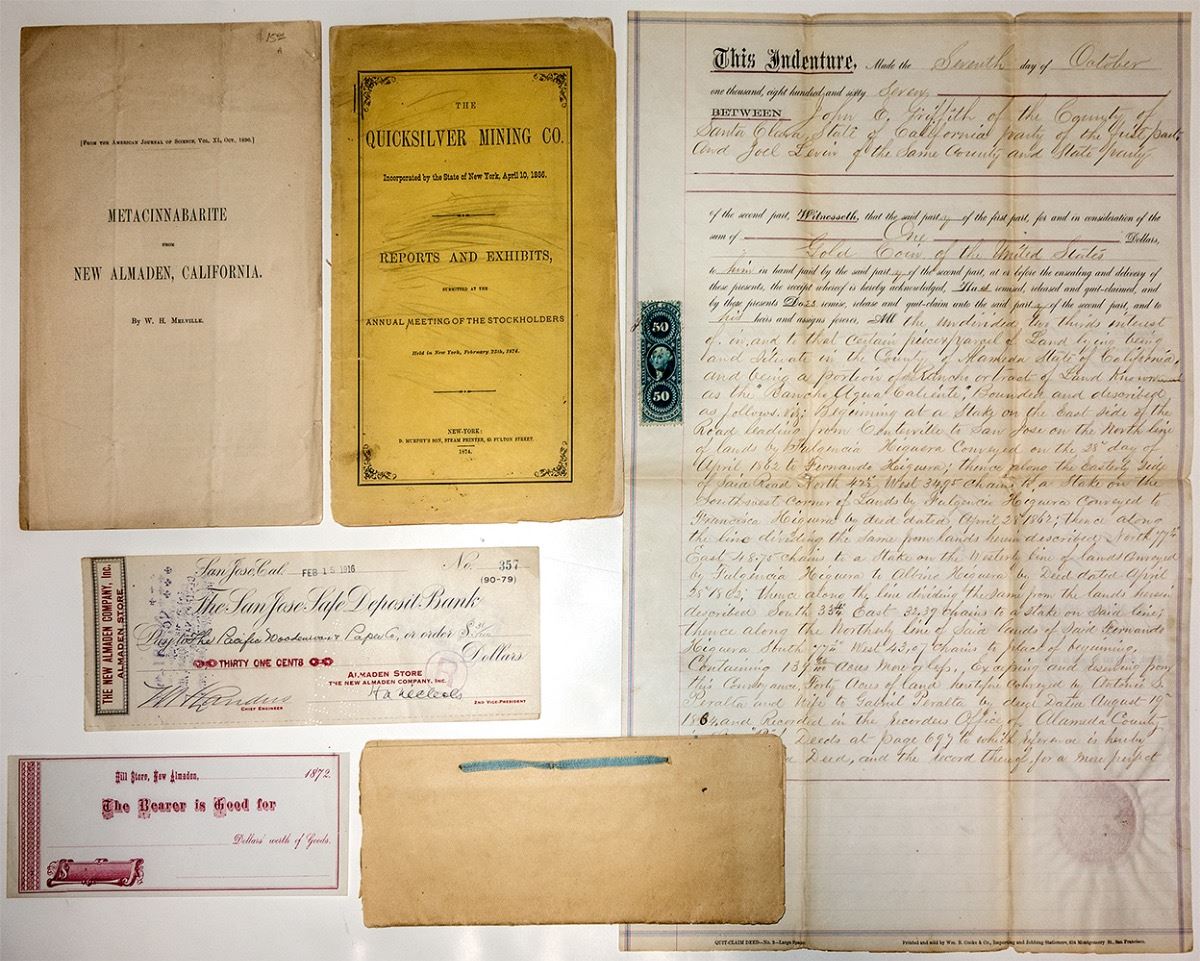 $15
[From the American Journal of Science, Vol. XI, Oct., 1890.]
METACINNABARITE
FROM
NEW ALMADEN, CALIFORNIA.
By W. H. Melville.
THE
QUICKSILVER MINING CO.
Incorporated by the State of New York, April 10, 1866.
REPORTS AND EXHIBITS,
SUBMITTED AT THE
ANNUAL MEETING OF THE STOCKHOLDERS
Held in New York, February 25th, 1874.
NEW-YORK:
D. MURPHY'S SON, STEAM PRINTER, 65 FULTON STREET.
1874.
This Indenture, Made the Seventh day of October
one thousand, eight hundred and sixty Seven
BETWEEN John E. Griffith of the County of
Santa Clara State of California party of the first part,
and Joel Levin of the Same County and State party
of the second part, Witnesseth, that the said party of the first part, for and in consideration of the
sum of One Dollars,
Gold Coin of the United States
to him in hand paid by the said party of the second part, at or before the ensealing and delivery of
these presents, the receipt whereof is hereby acknowledged, Has remised, released and quit-claimed, and
by these presents Does remise, release and quit-claim unto the said party of the second part, and to
his heirs and assigns forever, All the undivided two thirds interest
of, in, and to that certain piece or parcel of Land lying being
and Situate in the County of Alameda State of California,
and being a portion of Rancho or tract of Land Known
as the "Rancho Agua Caliente", Bounded and described
as follows. viz; Beginning at a Stake on the East side of the
Road leading from Centerville to San Jose on the North line
of lands by Fulgencia Higuera Conveyed on the 28th day of
April 1862 to Fernando Higuera; thence along the Easterly Side
of Said Road North 42½ West 34.95 Chains to a Stake on the
Southwest Corner of Lands by Fulgencia Higuera Conveyed to
Francisca Higuera by deed dated April 28th 1862; thence along
the line dividing the Same from lands herein described, North 77½
East 48.70 chains to a Stake on the Westerly line of lands Conveyed
by Fulgencia Higuera to Albino Higuera by Deed dated April
28th 1862; thence along the line dividing the Same from the lands herein
described South 33¾ East 32.37 Chains to a stake on Said line;
thence along the Northerly line of Said lands of Said Fernando
Higuera South 77½ West 43.07 Chains to place of beginning,
Containing 139 Acres More or less, Excepting and reserving from
this Conveyance, Forty Acres of land heretofore Conveyed by Antonio S.
Peralta and Wife to Gabriel Peralta by deed Dated August 19th
1864, and Recorded in the recorders Office of Alameda County
Deeds at page 697 to which reference is hereby
Deed, and the record thereof, for a more perfect
50
50
QUIT-CLAIM DEED—No. 3—Large Space
Printed and sold by Wm. B. Cooke & Co., Importing and Jobbing Stationers, 624 Montgomery St., San Francisco.
THE NEW ALMADEN COMPANY, Inc.
ALMADEN STORE
San Jose, Cal. FEB 15 1916 No. 357
(90-79)
The San Jose Safe Deposit Bank
Pay to The Pacific Woodenware & Paper Co, or order $
THIRTY ONE CENTS Dollars
ALMADEN STORE
THE NEW ALMADEN COMPANY, INC.
CHIEF ENGINEER
2ND VICE-PRESIDENT
Hill Store, New Almaden, 1872.
The Bearer is Good for
Dollars' worth of Goods.
$